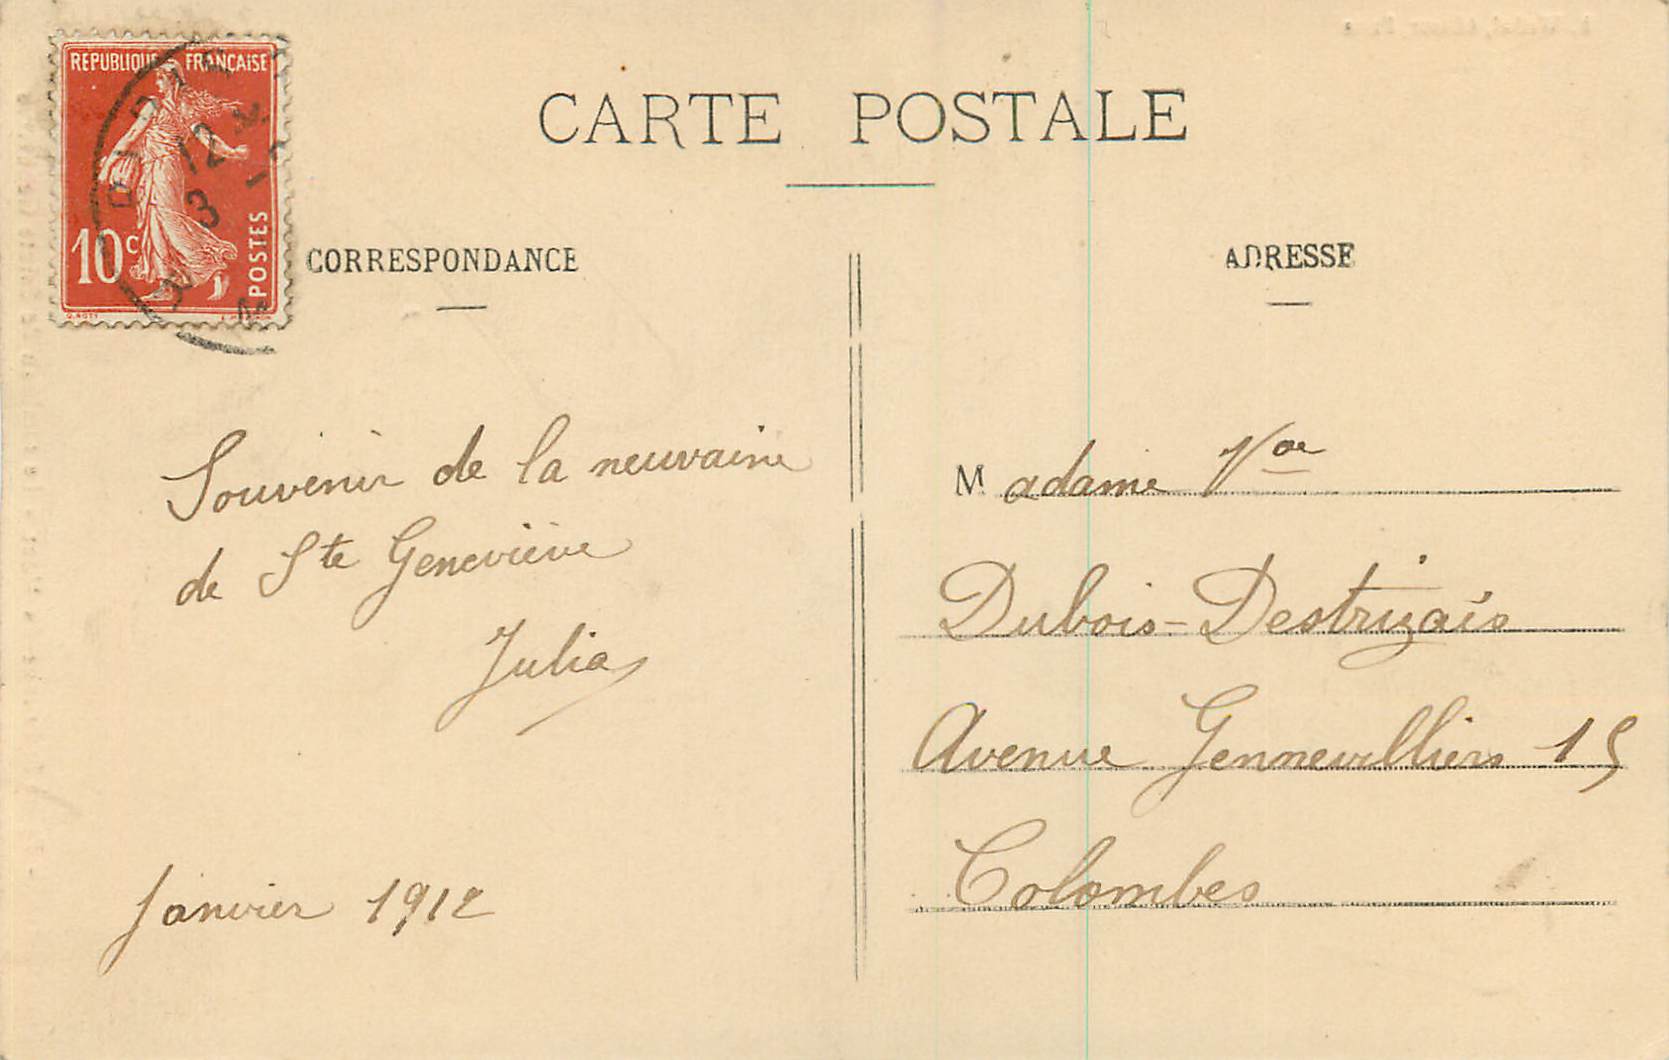 REPUBLIQUE FRANÇAISE
10c
POSTES
O. ROTY
12
3
CARTE POSTALE
CORRESPONDANCE
ADRESSE
Souvenir de la neuvaine
de Ste Geneviève
Julia
Janvier 1912
Madame Vve
Dubois-Destrizais
Avenue Gennevilliers 15
Colombes